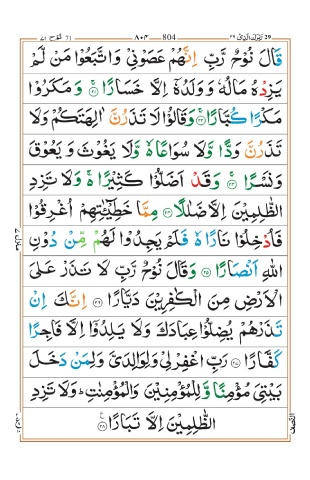 نوح ٧١ ٨٠٣ 804 تبرك الذي ٢٩ 29
قَالَ نُوْحٌ رَّبِّ اِنَّهُمْ عَصَوْنِیْ وَاتَّبَعُوْا مَنْ لَّمْ
یَزِدْهُ مَالُهٗ وَوَلَدُهٗۤ اِلَّا خَسَارًاۚ ۝۲۱ وَمَكَرُوْا
مَكْرًا كُبَّارًاۚ ۝۲۲ وَقَالُوْا لَا تَذَرُنَّ اٰلِهَتَكُمْ وَلَا
تَذَرُنَّ وَدًّا وَّلَا سُوَاعًا ۙ۬ وَّلَا یَغُوْثَ وَیَعُوْقَ
وَنَسْرًاۚ ۝۲۳ وَقَدْ اَضَلُّوْا كَثِیْرًا ۚ۬ وَلَا تَزِدِ
الظّٰلِمِیْنَ اِلَّا ضَلٰلًا ۝۲۴ مِمَّا خَطِیْٓـٰٔتِهِمْ اُغْرِقُوْا
فَاُدْخِلُوْا نَارًا ۙ۬ فَلَمْ یَجِدُوْا لَهُمْ مِّنْ دُوْنِ
اللّٰهِ اَنْصَارًا ۝۲۵ وَقَالَ نُوْحٌ رَّبِّ لَا تَذَرْ عَلَی
الْاَرْضِ مِنَ الْكٰفِرِیْنَ دَیَّارًا ۝۲۶ اِنَّكَ اِنْ
تَذَرْهُمْ یُضِلُّوْا عِبَادَكَ وَلَا یَلِدُوْۤا اِلَّا فَاجِرًا
كَفَّارًا ۝۲۷ رَبِّ اغْفِرْ لِیْ وَلِوَالِدَیَّ وَلِمَنْ دَخَلَ
بَیْتِیَ مُؤْمِنًا وَّلِلْمُؤْمِنِیْنَ وَالْمُؤْمِنٰتِ ؕ وَلَا تَزِدِ
الظّٰلِمِیْنَ اِلَّا تَبَارًا ۝۲۸